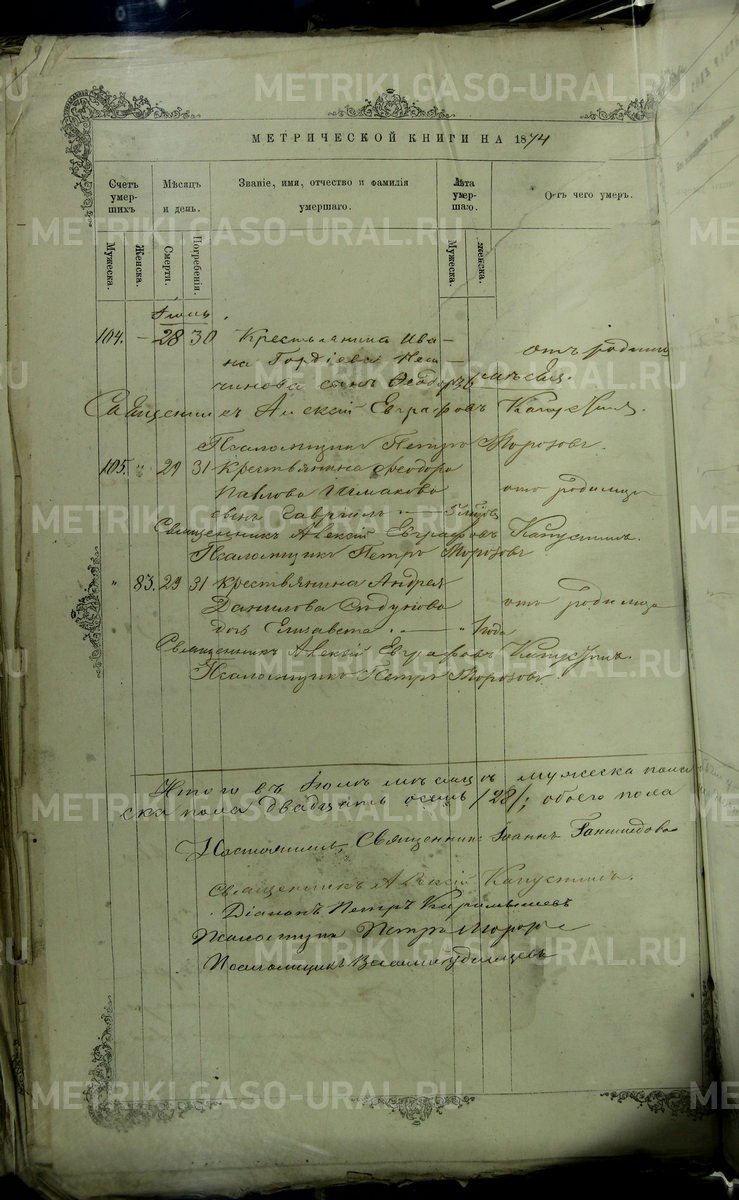 METRIKI.GASO-URAL.RU
МЕТРИЧЕСКОЙ КНИГИ НА 1874
Счетъ умершихъ
Мѣсяцъ и день.
Званіе, имя, отчество и фамилія умершаго.
Лѣта умершаго.
Отъ чего умеръ.
Мужеска.
Женска.
Смерти.
Погребенія.
Мужеска.
Женска.
Іюль.
104. - 28 30 Крестьянина Ива-
на Гордіева
сынъ Ѳеодоръ
отъ родимц
Священникъ Алексій Евграфовъ Капустинъ.
Псаломщикъ Петръ Морозовъ.
105. " 29 31 Крестьянина Ѳеодора
Павлова
сынъ Гавріилъ
отъ родимца
Священникъ Алексій Евграфовъ Капустинъ.
Псаломщикъ Петръ Морозовъ
" 83. 29 31 Крестьянина Андрея
Данилова
дочь Елизавета " 1 года
отъ родимца
Священникъ Алексій Евграфовъ Капустинъ.
Псаломщикъ Петръ Морозовъ.
Итого въ Іюлѣ мѣсяцѣ мужеска пола
ска пола двадцать осмь /28/; обоего пола
Священникъ Іоаннъ Ганимедовъ
Священникъ Алексій Капустинъ.
Діаконъ Петръ Карамышевъ
Псаломщикъ Петръ Морозовъ
Псаломщикъ Василій Удинцевъ